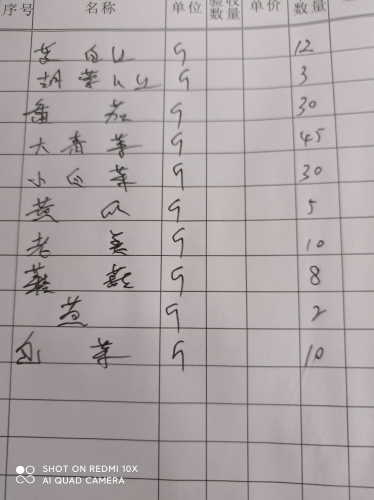 序号 名称 单位 验收数量 单价 数量
茭白 G 12
胡萝卜 G 3
番茄 G 30
大青菜 G 45
小白菜 G 30
黄瓜 G 5
老姜 G 10
G 8
葱 G 2
菜 G 10
SHOT ON REDMI 10X
AI QUAD CAMERA